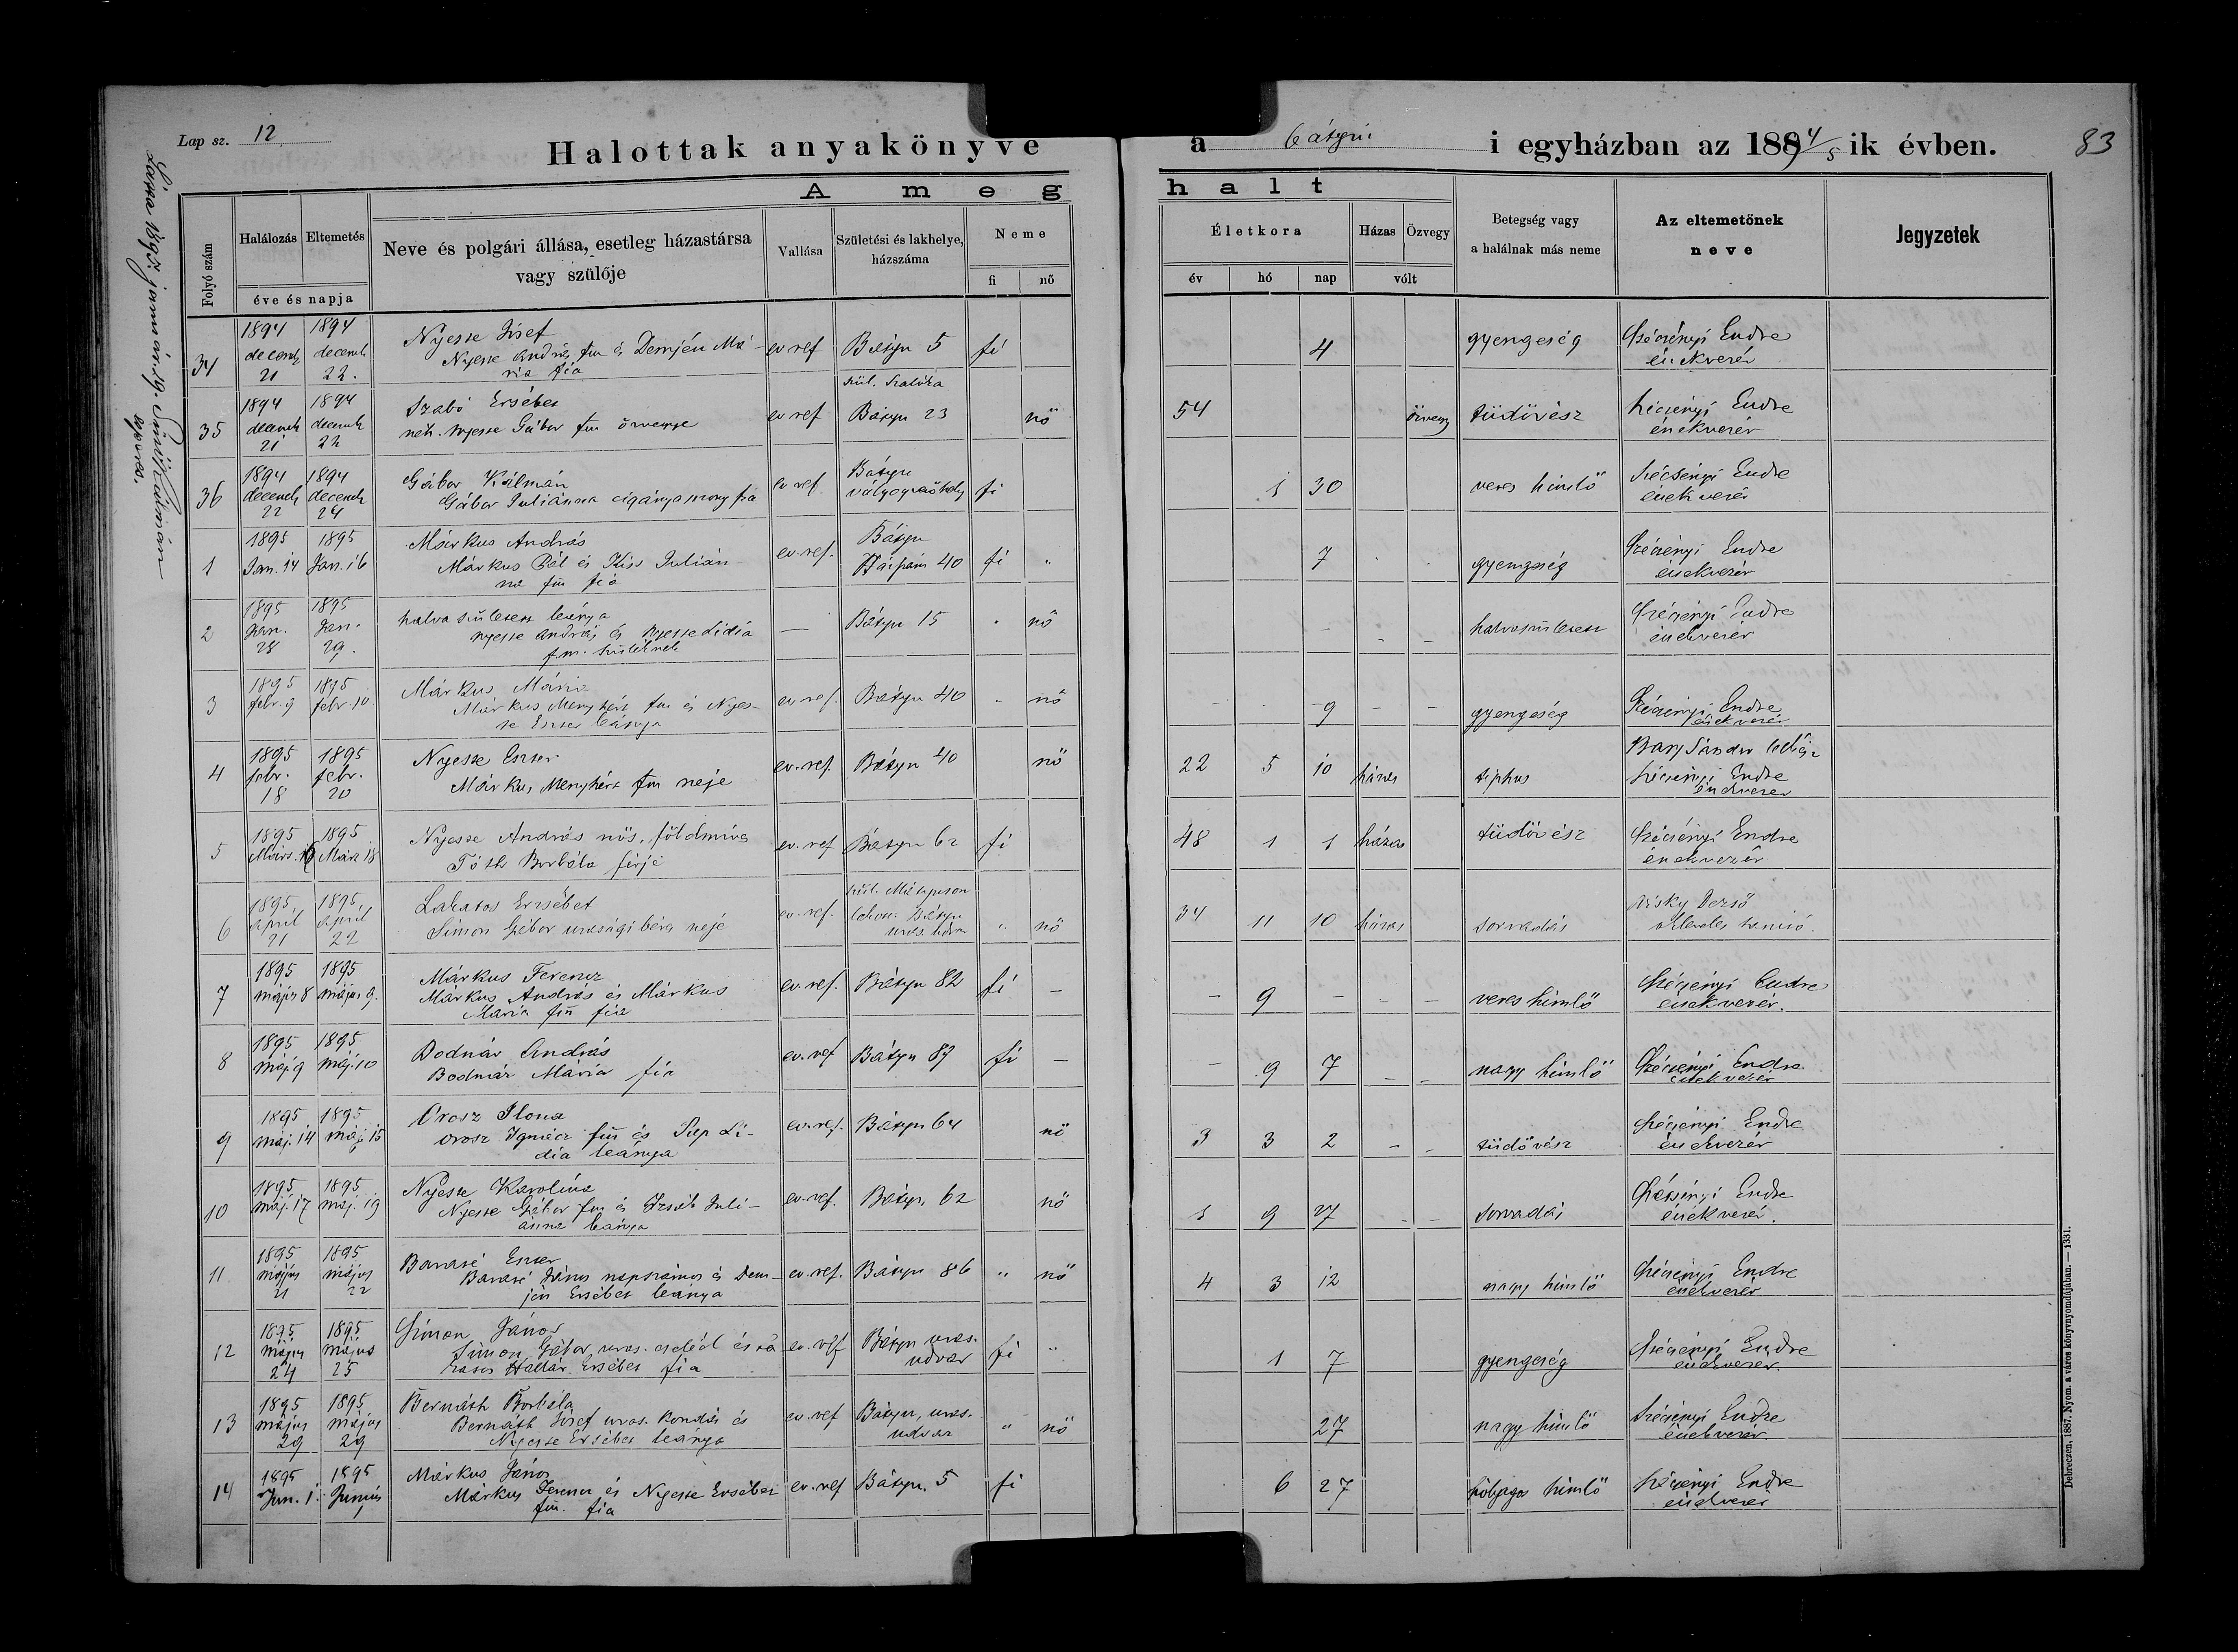 Lap sz. 12
Halottak anyakönyve a bátyui i egyházban az 1894/5 ik évben.
83
Láttam 1895. január 19.
A meg halt
Folyó szám
Halálozás Eltemetés
éve és napja
Neve és polgári állása, esetleg házastársa
vagy szülője
Vallása
Születési és lakhelye,
házszáma
Neme
fi nő
Életkora
év hó nap
Házas Özvegy
vólt
Betegség vagy
a halálnak más neme
Az eltemetőnek
neve
Jegyzetek
34 1894 decemb 21 1894 decemb 22.
Nyesse József
Nyesse András fm és Demjén Má-
ria fia
ev ref Bátyu 5 fi 4 gyengeség Szécsényi Endre
énekvezér
35 1894 decemb 21 1894 decemb 22
Szabó Erzsébet
néh. Nyesse Gábor fm özvegye
ev ref Szül. Szalóka
Bátyu 23 nő 54 özvegy tüdővész Szécsényi Endre
énekvezér
36 1894 decemb 22 1894 decemb 24
Gábor Kálmán
Gábor Juliánna cigányasszony fia
ev ref Bátyu
fi 1 30 veres himlő Szécsényi Endre
énekvezér
1 1895 Jan. 14 1895 Jan. 16
Márkus András
Márkus Pál és Kiss Julián-
na fm fia
ev. ref. Bátyu
40 fi " 7 gyengeség Szécsényi Endre
énekvezér
2 1895 Jan. 28 1895 Jan. 29.
halva született leánya
Nyesse András és Nyesse Lidia
f.m. szülőknek
— Bátyu 15 " nő - - - halvaszületett Szécsényi Endre
énekvezér
3 1895 febr. 9 1895 febr. 10
Márkus Mária
Márkus Menyhért fm és Nyes-
se Eszter leánya
ev. ref. Bátyu 40 " nő - - 9 - - gyengeség Szécsényi Endre
énekvezér
4 1895 febr. 18 1895 febr. 20
Nyesse Eszter
Márkus Menyhért fm neje
ev. ref. Bátyu 40 nő 22 5 10 házas tiphus Bary Sándor
Szécsényi Endre
énekvezér
5 1895 Márcz. 16 1895 Márcz 18
Nyesse András nős, földmíves
Tóth Borbála férje
ev. ref Bátyu 62 fi 48 1 1 házas tüdővész Szécsényi Endre
énekvezér
6 1895 April 21 1895 April 22
Lakatos Erzsébet
Simon Gábor urasági béres neje
ev. ref. szül.
Bátyu
" nő 34 11 10 házas sorvadás Visky Dezső
okleveles tanító.
7 1895 május 8 1895 május 9.
Márkus Ferencz
Márkus András és Márkus
Mária fm fia
ev. ref. Bátyu 82 fi — — 9 — — — veres himlő Szécsényi Endre
énekvezér.
8 1895 Máj. 9 1895 Máj. 10
Bodnár András
Bodnár Mária fia
ev. ref Bátyu 89 fi — — 9 7 - - nagy himlő Szécsényi Endre
énekvezér
9 1895 Máj. 14 1895 Máj. 15
Orosz Ilona
Orosz Ignácz fm és Pap Li-
dia leánya
ev. ref. Bátyu 64 nő 3 3 2 - - tüdővész Szécsényi Endre
énekvezér
10 1895 Máj. 17 1895 Máj. 19
Nyesse Karolina
Nyesse Gábor fm és Izsák Juli-
ánna leánya
ev. ref. Bátyu 62 nő 1 9 27 - - sorvadás Szécsényi Endre
énekvezér.
11 1895 május 21 1895 május 22
Baraté Eszter
Baraté János napszámos és Dem-
jén Erzsébet leánya
ev. ref. Bátyu 86 " nő 4 3 12 nagy himlő Szécsényi Endre
énekvezér
12 1895 május 24 1895 május 25
Simon János
Simon Gábor uras. cseléd és
Erzsébet fia
ev. ref Bátyu uras.
udvar fi " 1 7 gyengeség Szécsényi Endre
énekvezér
13 1895 május 29 1895 május 29
Bernáth Borbála
Bernáth József uras. kondás és
Nyesse Erzsébet leánya
ev. ref Bátyu, uras.
udvar " nő 27 nagy himlő Szécsényi Endre
énekvezér
14 1895 Jun. 1. 1895 Junius
Márkus János
Márkus Ferencz és Nyesse Erzsébet
fm. fia
ev. ref Bátyu. 5 fi 6 27 hólyagos himlő Szécsényi Endre
énekvezér
Debreczen, 1887. Nyom. a város könyvnyomdájában. — 1331.